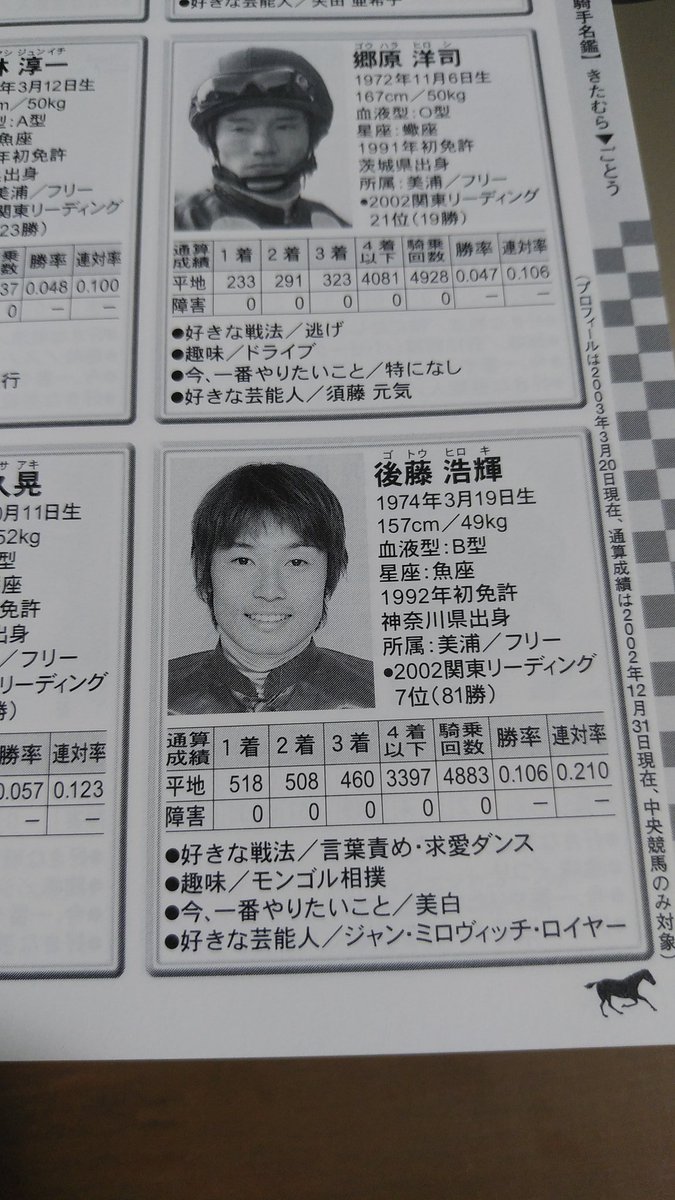 ●好きな芸能人／矢田 亜希子
騎手名鑑】きたむら▼ごとう
ジュンイチ
淳一
年3月12日生
cm／50kg
型：A型
魚座
年初免許
県出身
美浦／フリー
関東リーディング
23勝)
勝率 連対率
37 0.048 0.100
0 － －
行
ゴウハラ ヒロシ
郷原 洋司
1972年11月6日生
167cm／50kg
血液型：O型
星座：蠍座
1991年初免許
茨城県出身
所属：美浦／フリー
●2002関東リーディング
21位(19勝)
通算成績 1着 2着 3着 4着以下 騎乗回数 勝率 連対率
平地 233 291 323 4081 4928 0.047 0.106
障害 0 0 0 0 0 － －
●好きな戦法／逃げ
●趣味／ドライブ
●今、一番やりたいこと／特になし
●好きな芸能人／須藤 元気
サアキ
久晃
0月11日生
52kg
型
座
免許
出身
／フリー
リーディング
勝)
勝率 連対率
0.057 0.123
－ －
ゴトウ ヒロキ
後藤 浩輝
1974年3月19日生
157cm／49kg
血液型：B型
星座：魚座
1992年初免許
神奈川県出身
所属：美浦／フリー
●2002関東リーディング
7位(81勝)
通算成績 1着 2着 3着 4着以下 騎乗回数 勝率 連対率
平地 518 508 460 3397 4883 0.106 0.210
障害 0 0 0 0 0 － －
●好きな戦法／言葉責め・求愛ダンス
●趣味／モンゴル相撲
●今、一番やりたいこと／美白
●好きな芸能人／ジャン・ミロヴィッチ・ロイヤー
(プロフィールは2003年3月20日現在、通算成績は2002年12月31日現在、中央競馬のみ対象)